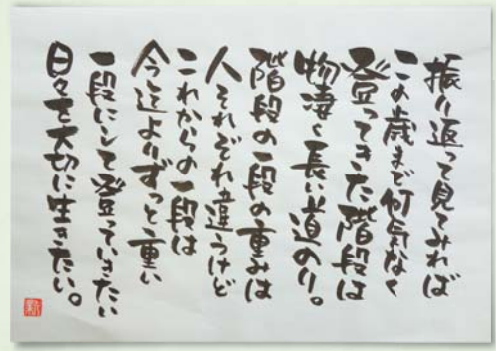 振り返って見てみれば
この歳まで何気なく
登ってきた階段は
物凄く長い道のり。
階段の一段の重みは
人それぞれ違うけど
これからの一段は
今迄よりずっと重い
一段にして登っていきたい
日々を大切に生きたい。